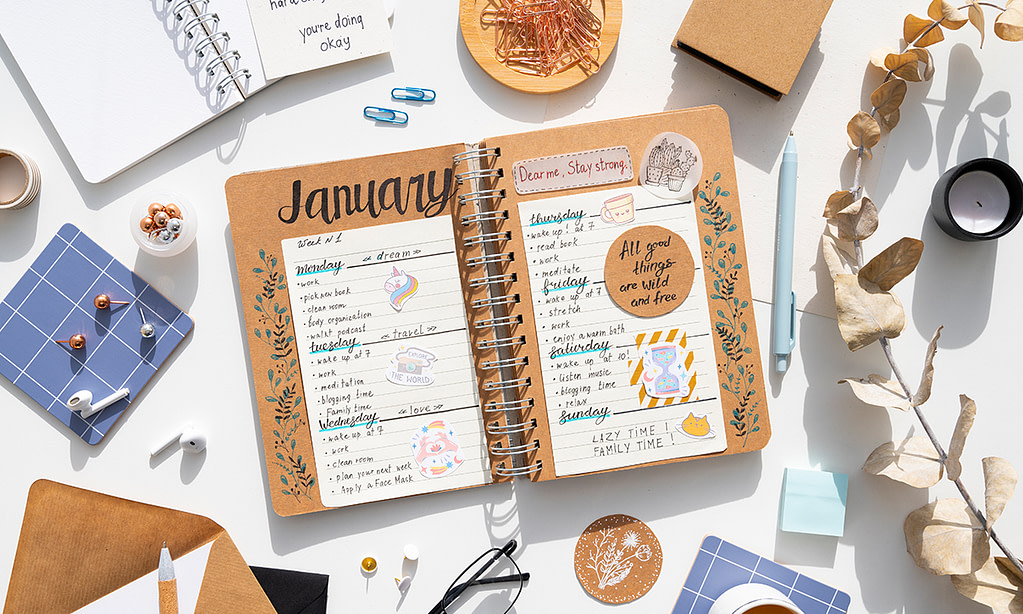 you're doing
okay
January
Week N1
monday
<< dream >>
• work
• pick new book
• clean room
• body organization
• walk + podcast
tuesday
<< travel >>
• wake up at 7
• work
• meditation
• blogging time
Family time
EXPLORE
THE WORLD
Wednesday
<< love >>
• wake up at 7
• work
• clean room
• plan your next week
• Apply a Face Mask
Dear me, Stay strong.
thursday
• wake up! at 7
• read book
• work
• meditate
All good
things
are wild
and free
friday
• wake up at 7
• stretch
• work
• enjoy a warm bath
saturday
• wake up at 10!
• listen music
• blogging time
• relax
sunday
LAZY TIME !
FAMILY TIME !